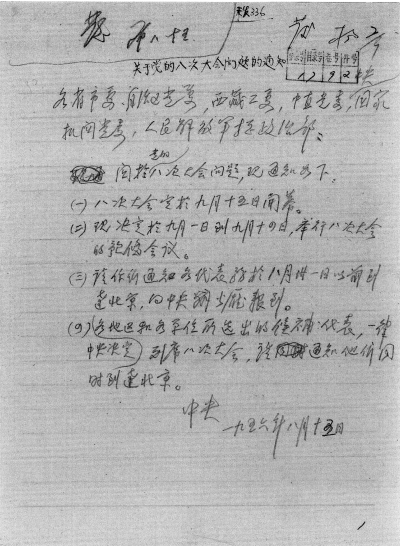 关于党的八次大会问题的通知
各省市委、自治区党委，西藏工委，中直党委，国家
机关党委，人民解放军总政治部：
党的
关于八次大会问题，现通知如下。
(一)八次大会定于九月十五日開幕。
(二)现决定于九月一日到九月十四日，举行八次大会
的预备会议。
(三)请你们通知各代表务于八月廿一日以前到
达北京，向中央办公厅报到。
(四)各地区和各单位所选出的候补代表，一律
中央决定
列席八次大会，请通知他们同
时到达北京。
中央
一九五六年八月十五日
1